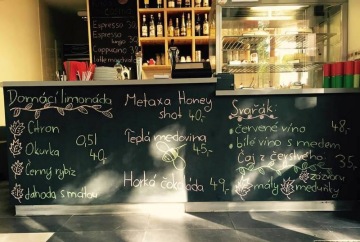 Espresso
Espresso
lungo
Cappuccino
Domácí limonáda
Citron
Okurka
0,5l
40,-
Černý rybíz
Jahoda s mátou
Metaxa Honey
shot 40,-
Teplá medovina
45,-
Horká čokoláda 49,-
Svařák:
červené víno 48,-
bílé víno s medem
Čaj z čerstvého
zázvoru
35
malý
meduňky